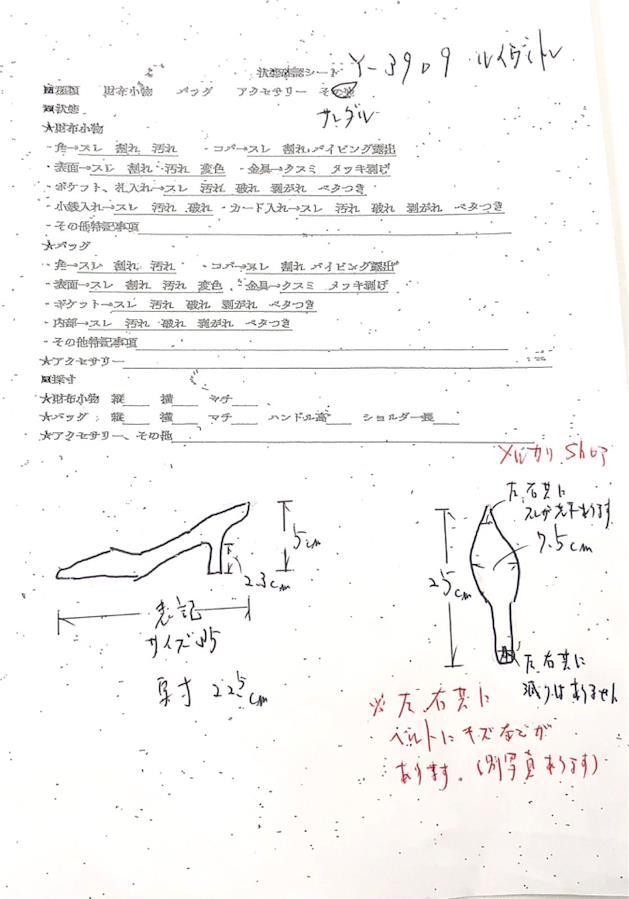 状態確認シート
Y-3909 ルイヴィトン
■種類 財布小物 バッグ アクセサリー その他
サンダル
■状態
★財布小物
・角→スレ 割れ 汚れ ・コバ→スレ 割れ パイピング露出
・表面→スレ 割れ 汚れ 変色 ・金具→クスミ メッキ剥げ
・ポケット、札入れ→スレ 汚れ 破れ 剥がれ ベタつき
・小銭入れ→スレ 汚れ 破れ ・カード入れ→スレ 汚れ 破れ 剥がれ ベタつき
・その他特記事項
★バッグ
・角→スレ 割れ 汚れ ・コバ→スレ 割れ パイピング露出
・表面→スレ 割れ 汚れ 変色 ・金具→クスミ メッキ剥げ
・ポケット→スレ 汚れ 破れ 剥がれ ベタつき
・内部→スレ 汚れ 破れ 剥がれ ベタつき
・その他特記事項
★アクセサリー
■採寸
★財布小物 縦 横 マチ
★バッグ 縦 横 マチ ハンドル高 ショルダー長
★アクセサリー、その他
メルカリ Shop
5cm
2.3cm
表記
サイズ 35
実寸 22.5cm
左右共に
スレが若干あります
7.5cm
25cm
左右共に
減りはありません
※左右共に
ベルトにキズなどが
あります。(別写真あります)